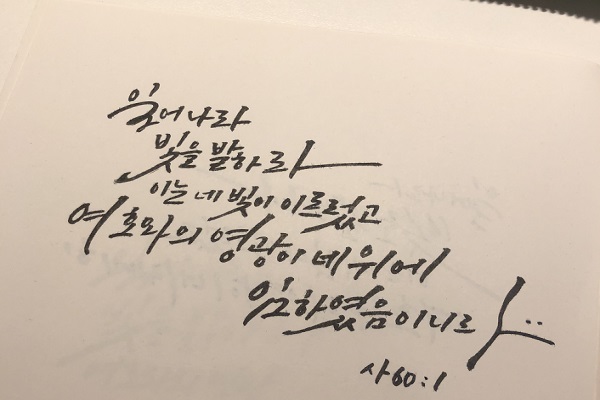 일어나라
빛을 발하라
이는 네 빛이 이르렀고
여호와의 영광이 네 위에
임하였음이니라..
사60:1